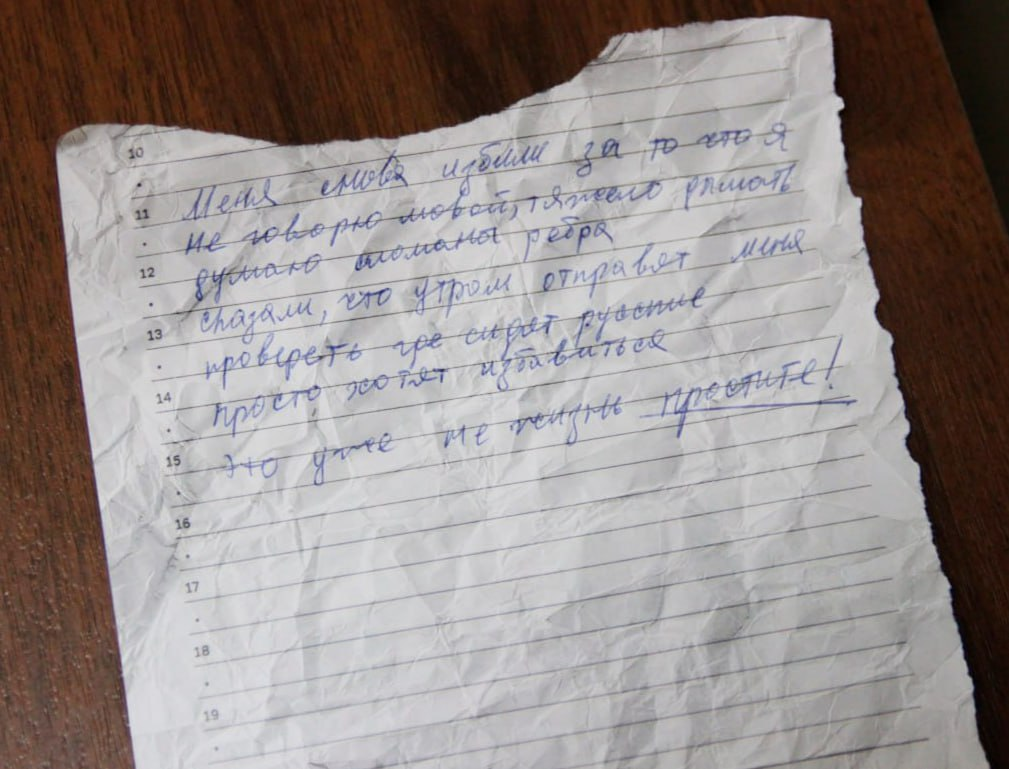 10
Меня снова избили за то что я
11
не говорю мовой, тяжело дышать
12
думаю сломаны ребра
сказали, что утром отправят меня
13
проверять где сидят русские
14
просто хотят избавиться
15
это уже не жизнь простите!
16
17
18
19